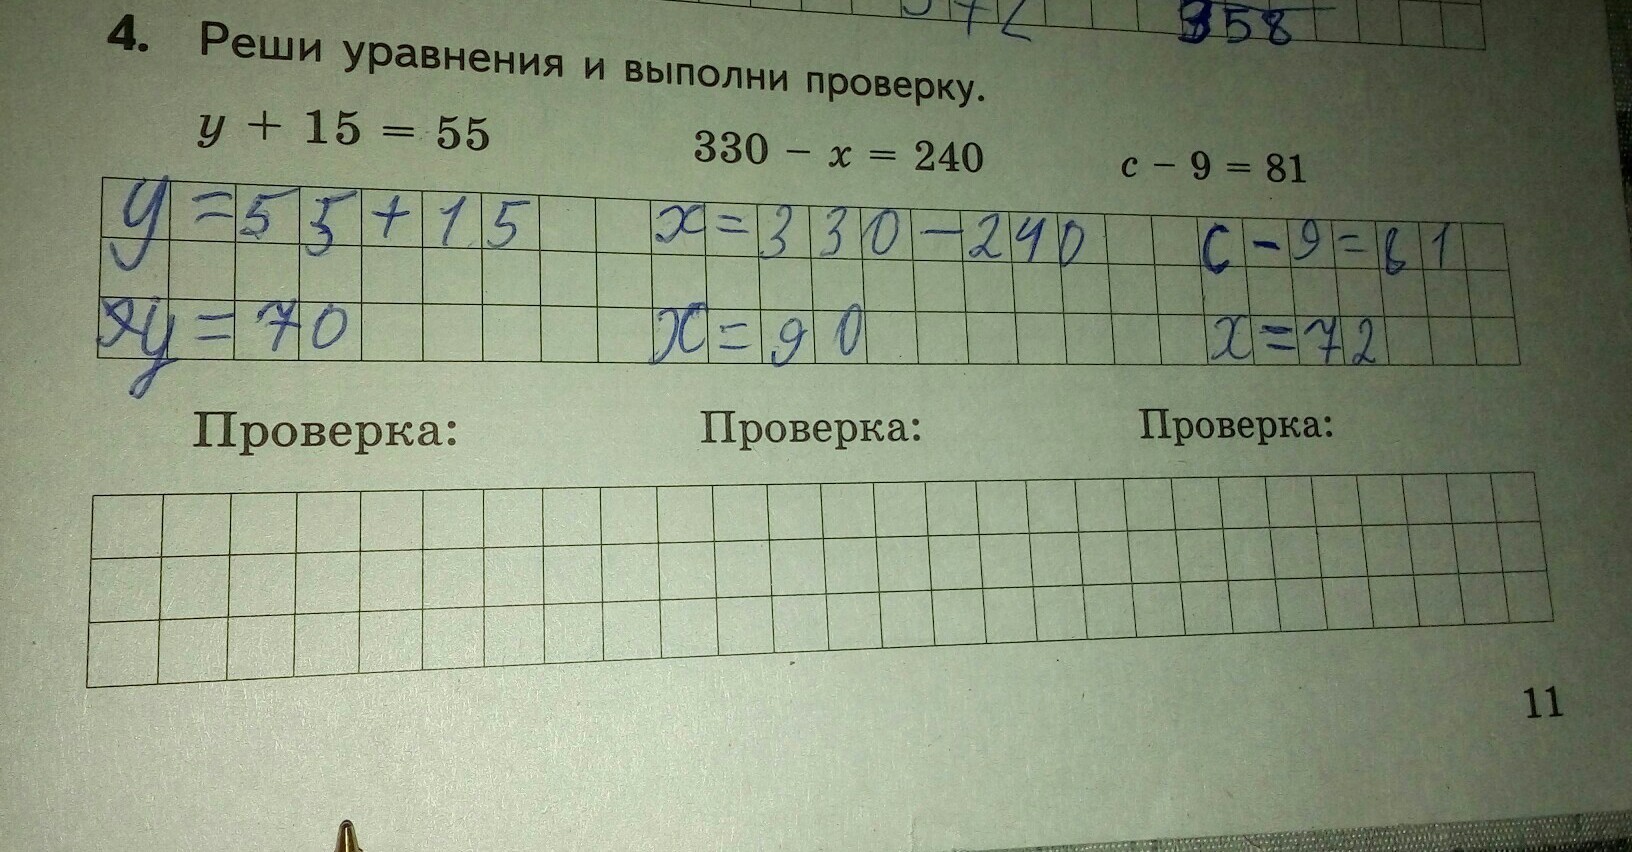 372 358
4. Реши уравнения и выполни проверку.
y + 15 = 55 330 − x = 240 c − 9 = 81
y = 55 + 15 x = 330 − 240 c − 9 = 81
y = 70 x = 90 x = 72
Проверка: Проверка: Проверка:
11